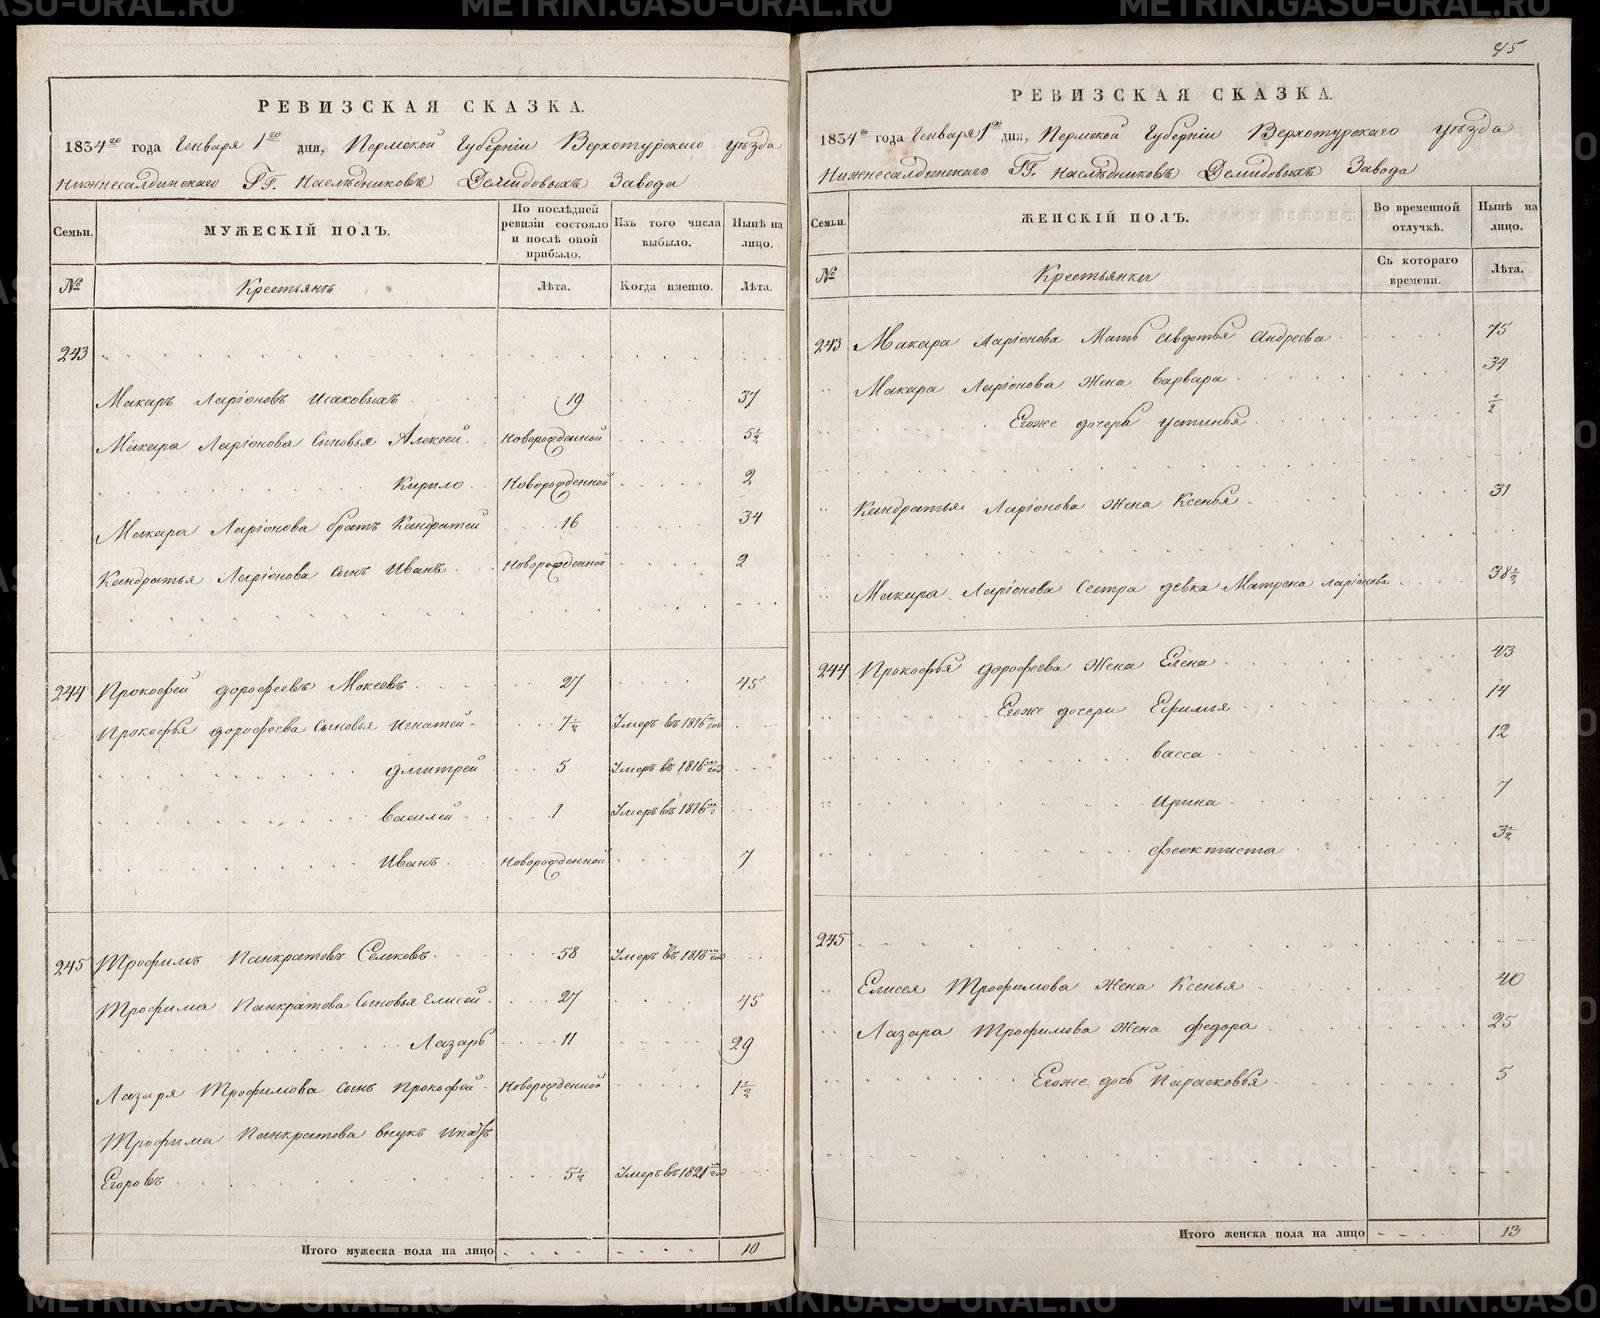 РЕВИЗСКАЯ СКАЗКА.
1834го года Генваря 1го дня, Пермской Губерніи Верхотурскаго уѣзда
Нижнесалдинскаго ГГ. Наслѣдниковъ Демидовыхъ Завода
Семьи. МУЖЕСКІЙ ПОЛЪ. По послѣдней ревизіи состояло и послѣ оной прибыло. Изъ того числа выбыло. Нынѣ на лицо.
№ Крестьянъ Лѣта. Когда именно. Лѣта.
243
Макаръ Ларіоновъ Исаковыхъ 19 37
Макара Ларіонова Сыновья Алексей Новорожденной 5½
Кирило Новорожденной 2
Макара Ларіонова братъ Кандратей 16 34
Кандратья Ларіонова сынъ Иванъ Новорожденной 2
244 Прокофей Дорофеевъ Мокеевъ 27 45
Прокофья Дорофеева Сыновья Игнатей 7½ Умеръ въ 1816м год
Дмитрей 5 Умеръ въ 1816м год
Василей 1 Умеръ въ 1816м
Иванъ Новорожденной 7
245 Трофимъ Панкратовъ Семковъ 58 Умеръ въ 1818м год
Трофима Панкратова Сыновья Елисей 27 45
Лазарь 11 29
Лазаря Трофимова сынъ Прокофей Новорожденной 1½
Трофима Панкратова внукъ
Егоровъ 5½ Умеръ въ 1821м год
Итого мужеска пола на лицо 10
45
РЕВИЗСКАЯ СКАЗКА.
1834го года Генваря 1го дня, Пермской Губерніи Верхотурскаго уѣзда
Нижнесалдинскаго ГГ. Наслѣдниковъ Демидовыхъ Завода
Семьи. ЖЕНСКІЙ ПОЛЪ. Во временной отлучкѣ. Нынѣ на лицо.
№ Крестьянки Съ котораго времени. Лѣта.
243 Макара Ларіонова Мать Авдотья Андреева 75
Макара Ларіонова Жена Варвара 34
Егоже дочерь Устинья ½
Кандратья Ларіонова Жена Ксенья 31
Макара Ларіонова Сестра девка Матрена Ларіонова 38½
244 Прокофья Дорофеева Жена Елена 43
Егоже дочери Ефимья 14
Васса 12
Ирина 7
Феоктиста 3½
245
Елисея Трофимова Жена Ксенья 40
Лазара Трофимова Жена Федора 25
Егоже дочь Парасковья 5
Итого женска пола на лицо 13
METRIKI.GASU-URAL.RU